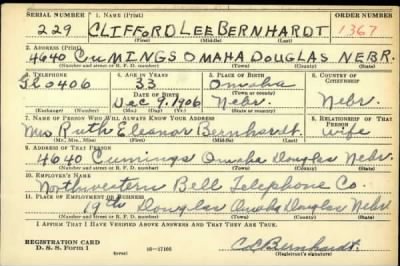 SERIAL NUMBER 1. NAME (Print) ORDER NUMBER
229 CLIFFORD LEE BERNHARDT 1367
(First) (Middle) (Last)
2. ADDRESS (Print)
4640 CUMINGS OMAHA DOUGLAS NEBR.
(Number and street or R. F. D. number) (Town) (County) (State)
3. TELEPHONE 4. AGE IN YEARS 5. PLACE OF BIRTH 6. COUNTRY OF CITIZENSHIP
0406 33 Omaha
DATE OF BIRTH (Town or county)
Dec 9, 1906 Nebr. Nebr.
(Exchange) (Number) (Mo.) (Day) (Yr.) (State or country)
7. NAME OF PERSON WHO WILL ALWAYS KNOW YOUR ADDRESS 8. RELATIONSHIP OF THAT PERSON
Mrs Ruth Eleanor Bernhardt. wife
(Mr., Mrs., Miss) (First) (Middle) (Last)
9. ADDRESS OF THAT PERSON
4640 Cumings Omaha Douglas Nebr.
(Number and street or R. F. D. number) (Town) (County) (State)
10. EMPLOYER'S NAME
Northwestern Bell Telephone Co.
11. PLACE OF EMPLOYMENT OR BUSINESS
19th Douglas Omaha Douglas Nebr
(Number and street or R. F. D. number) (Town) (County) (State)
I AFFIRM THAT I HAVE VERIFIED ABOVE ANSWERS AND THAT THEY ARE TRUE.
REGISTRATION CARD
D. S. S. Form 1 16—17105 C L Bernhardt.
(over) (Registrant's signature)